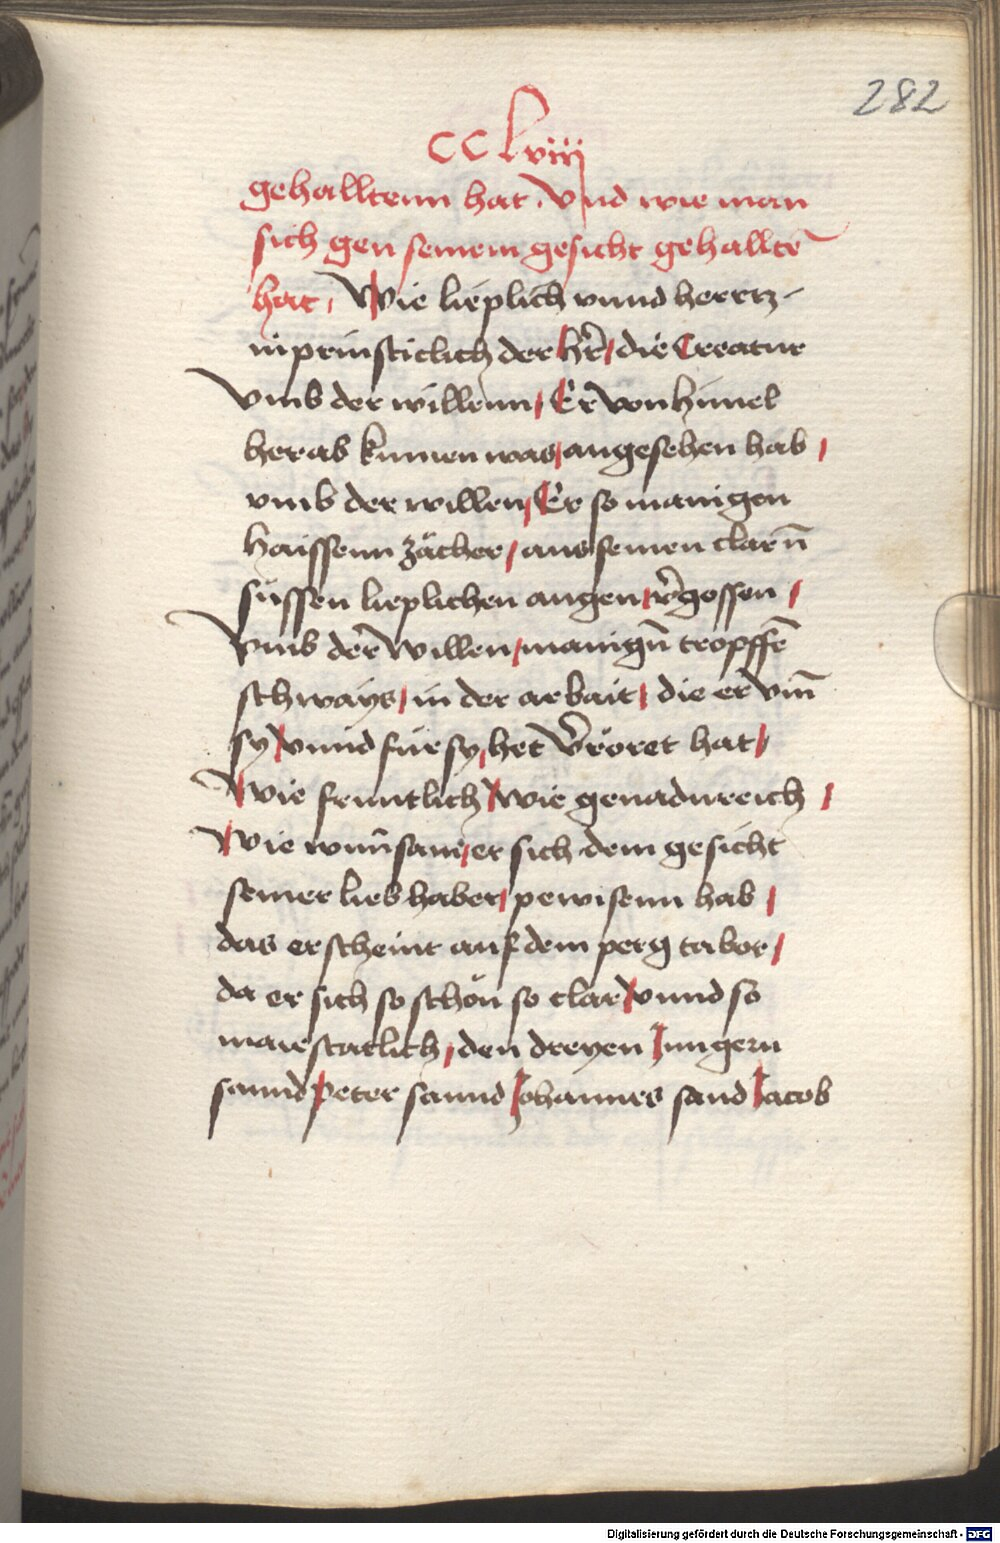 282
CCLviij
gehalltenn hat. Vnd wie man
sich gen seinem gesicht gehallte͂
hat, Wie lieplich vnnd herrtz-
inprinsticlich der her͂/ die Creatur
vmb der willenn/ Er von himel
herab kumen was/ angesehen hab/
vmb der willen/ Er so manigen
haissenn zächer/ aus seinen clarn͂
süssen lieplichen augen/ v͂gossen/
Vmb der͂ willen/ manign͂ tropffe͂
schways/ in der arbait/ die er vm͂
sy/ vnnd für sy/ het v͂röret hat/
Wie fruntlich/ wie genadnreich/
Wie wun͂sam/ er sich dem gesicht
seiner lieb haber/ pewisenn hab/
das erscheint auf dem perg tabor/
da er sich so schön so clar/ vnnd so
maiestatlich/ den dreyen Jungern
sannd Peter sannd Johannes sand Jacob
Digitalisierung gefördert durch die Deutsche Forschungsgemeinschaft - DFG